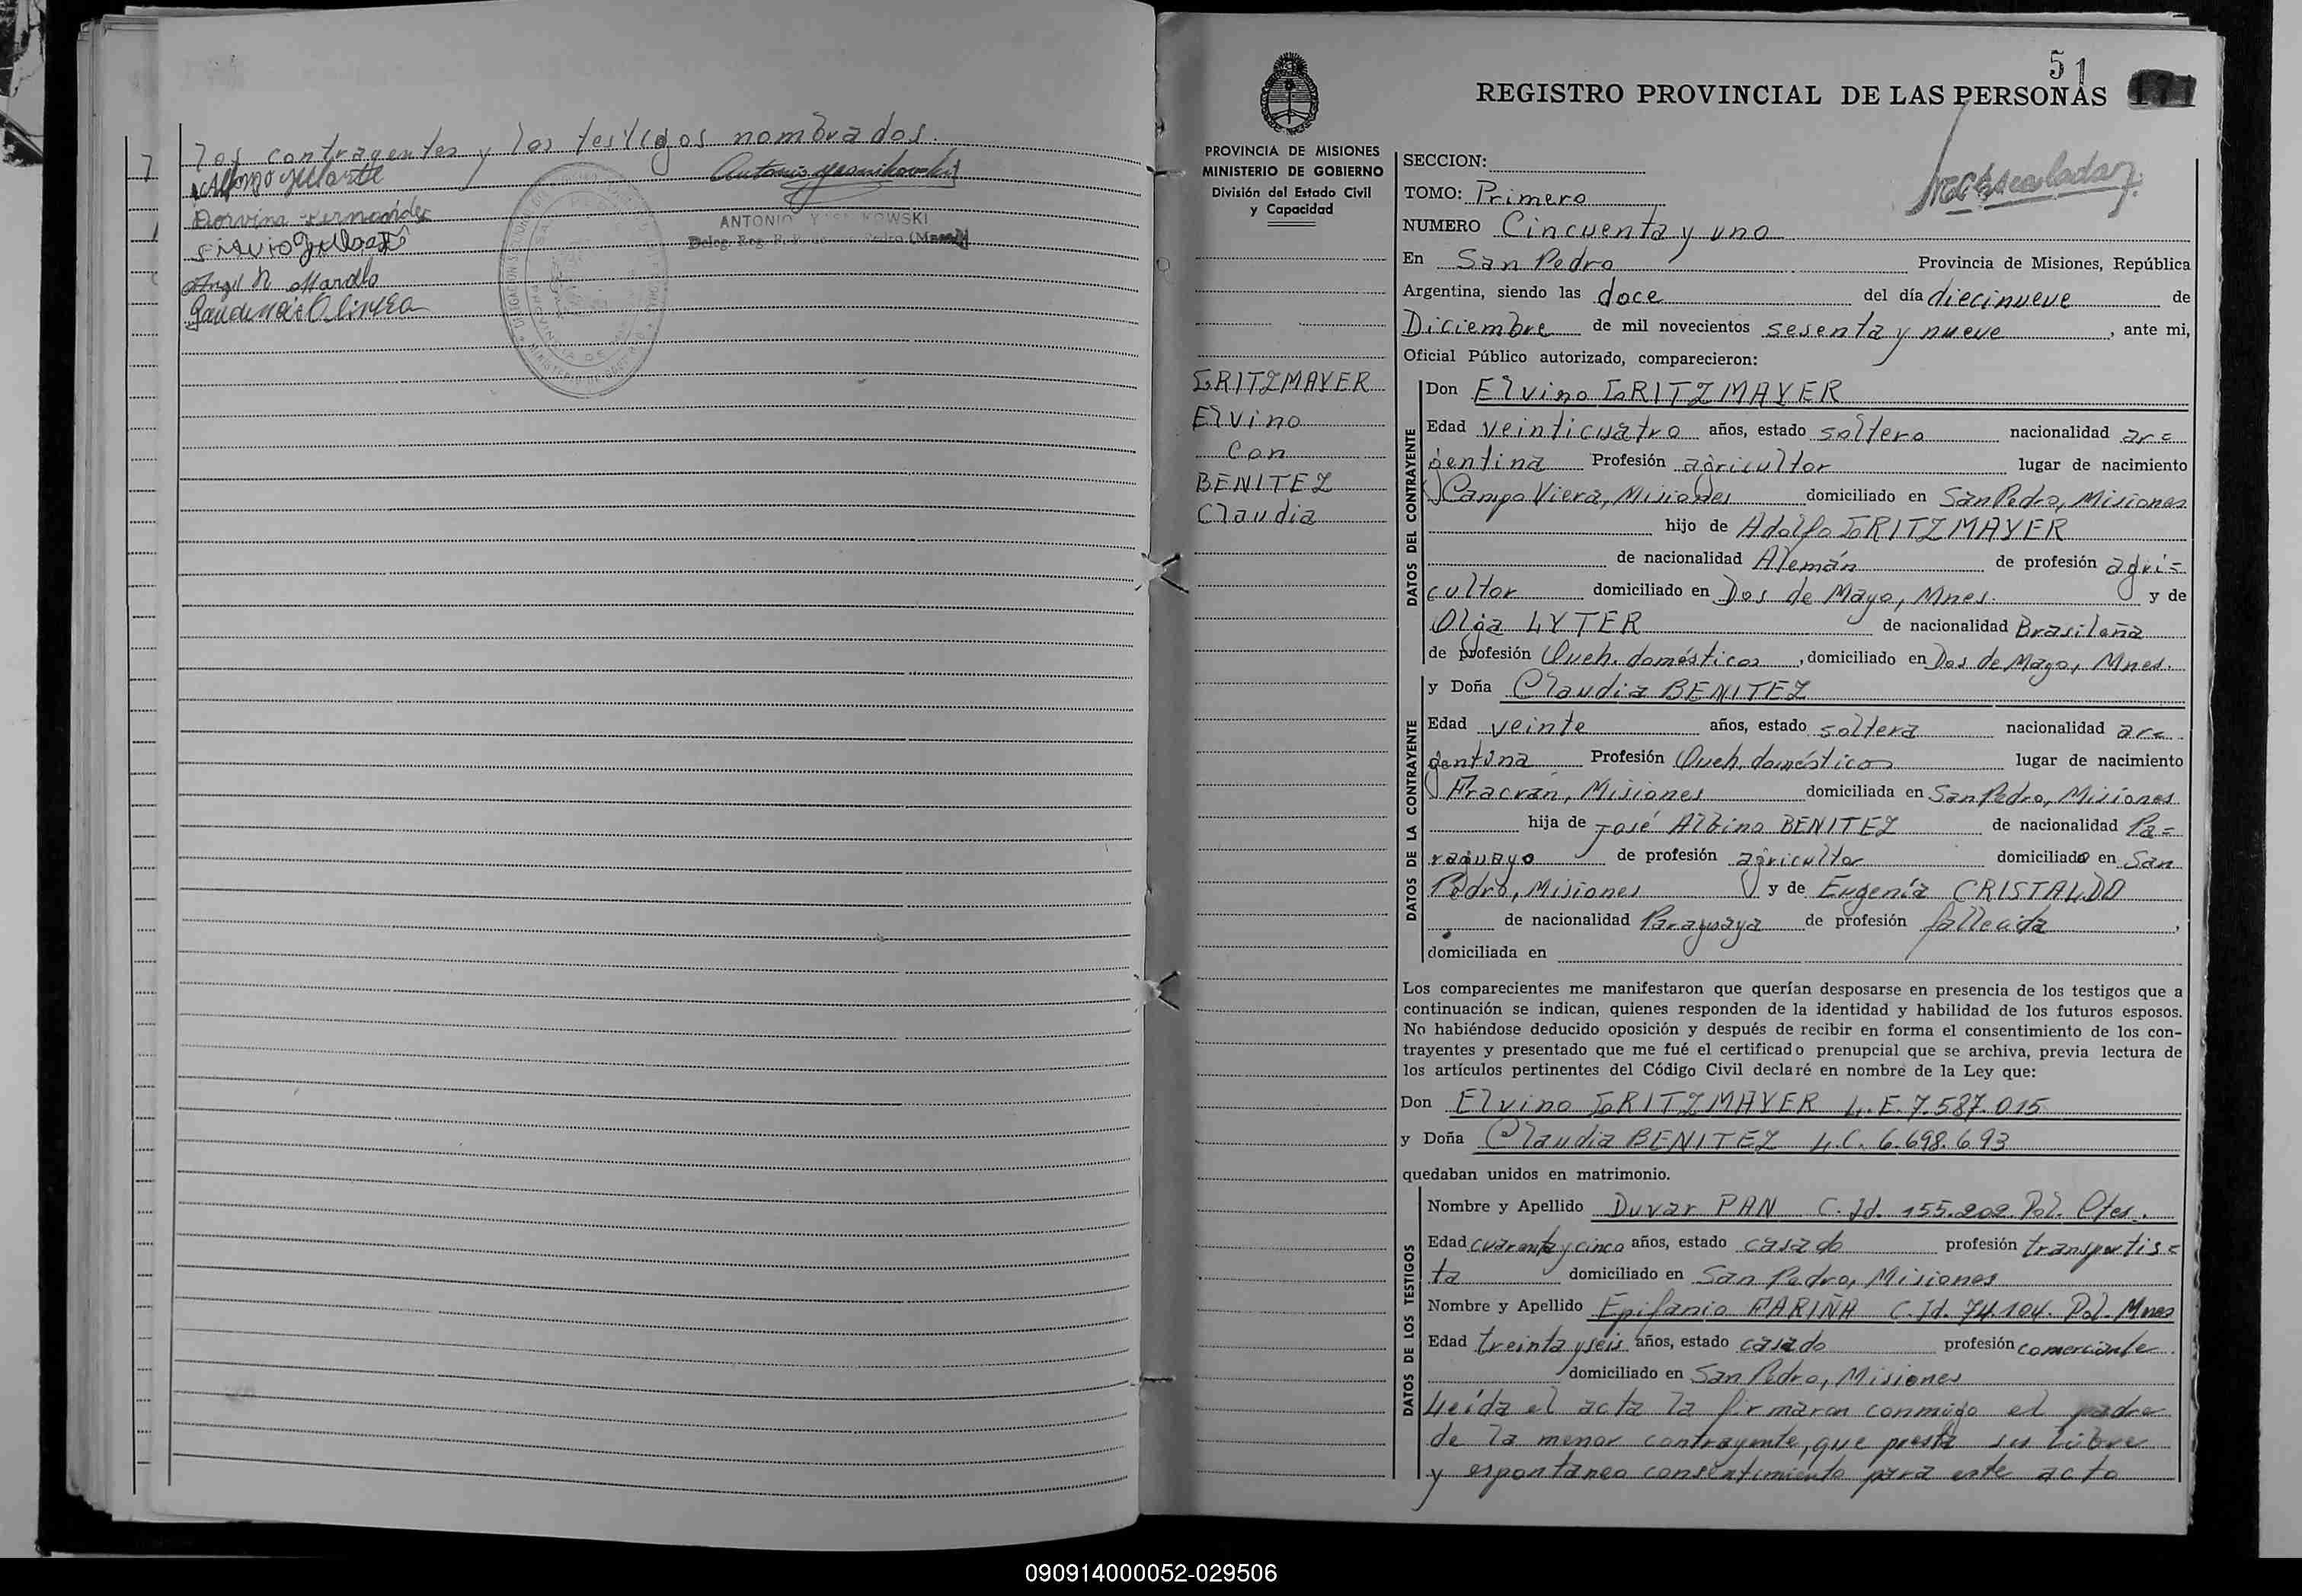 los contrayentes y los testigos nombrados.
Dorvina Fernandez
Silvio
Angel R Morello
ANTONIO
REGISTRO PROVINCIAL DE LAS PERSONAS
51
171
PROVINCIA DE MISIONES
MINISTERIO DE GOBIERNO
División del Estado Civil
y Capacidad
GRITZMAYER
Elvino
Con
BENITEZ
Claudia
SECCION:
TOMO: Primero
NUMERO Cincuenta y uno
En San Pedro Provincia de Misiones, República
Argentina, siendo las doce del día diecinueve de
Diciembre de mil novecientos sesenta y nueve, ante mi,
Oficial Público autorizado, comparecieron:
DATOS DEL CONTRAYENTE
Don Elvino GRITZMAYER
Edad veinticuatro años, estado soltero nacionalidad ar=
gentina Profesión agricultor lugar de nacimiento
Campo Viera, Misiones domiciliado en San Pedro, Misiones
hijo de Adolfo GRITZMAYER
de nacionalidad Alemán de profesión agri=
cultor domiciliado en Dos de Mayo, Mnes. y de
Olga LYTER de nacionalidad Brasileña
de profesión Queh. domésticos, domiciliado en Dos de Mayo, Mnes.
DATOS DE LA CONTRAYENTE
y Doña Claudia BENITEZ
Edad veinte años, estado soltera nacionalidad ar=
gentina Profesión Queh. domésticos lugar de nacimiento
Fracrán, Misiones domiciliada en San Pedro, Misiones
hija de José Albino BENITEZ de nacionalidad Pa=
raguayo de profesión agricultor domiciliado en San
Pedro, Misiones y de Eugenía CRISTALDO
de nacionalidad Paraguaya de profesión fallecida,
domiciliada en
Los comparecientes me manifestaron que querían desposarse en presencia de los testigos que a
continuación se indican, quienes responden de la identidad y habilidad de los futuros esposos.
No habiéndose deducido oposición y después de recibir en forma el consentimiento de los con-
trayentes y presentado que me fué el certificado prenupcial que se archiva, previa lectura de
los artículos pertinentes del Código Civil declaré en nombre de la Ley que:
Don Elvino GRITZMAYER L.E. 7.587.015
y Doña Claudia BENITEZ L.C. 6.698.693
quedaban unidos en matrimonio.
DATOS DE LOS TESTIGOS
Nombre y Apellido Duvar PAN C. Id. 155.202. Pol. Ctes.
Edad cuarenta y cinco años, estado casado profesión transportis=
ta domiciliado en San Pedro, Misiones
Nombre y Apellido Epifanio FARIÑA C. Id. 74.104. Pol. Mnes
Edad treinta y seis años, estado casado profesión comerciante
domiciliado en San Pedro, Misiones
Leída el acta la firmaron conmigo el padre
de la menor contrayente, que presta su libre
y espontáneo consentimiento para este acto
090914000052-029506